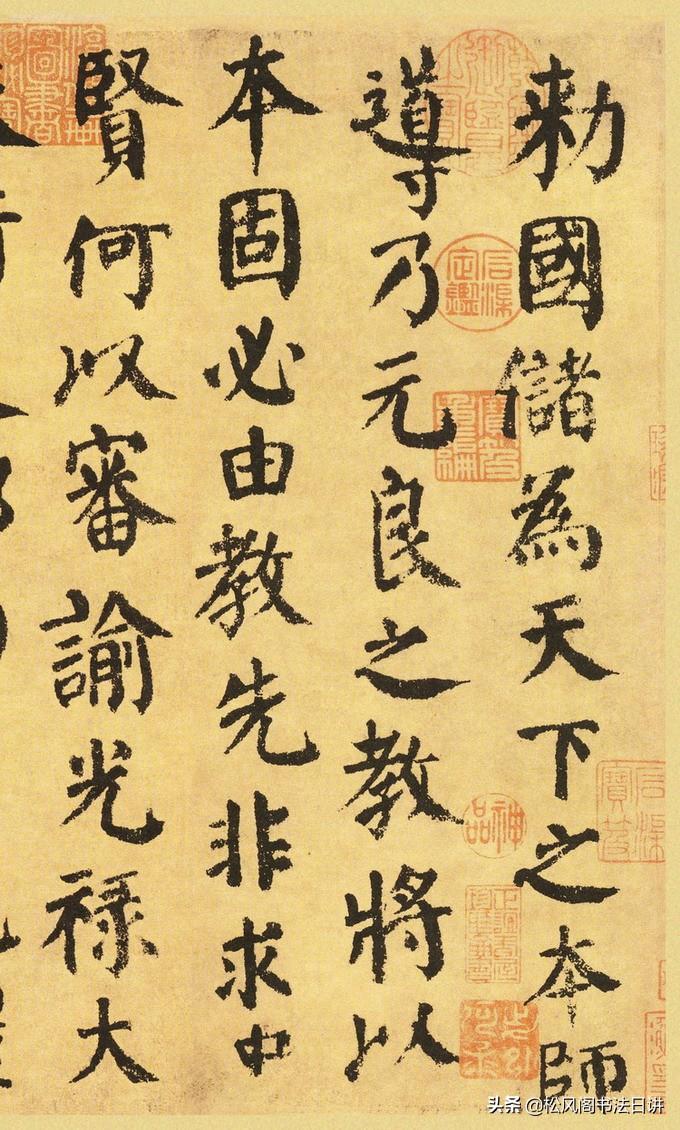 勑國儲為天下之本師
導乃元良之教將以
本固必由教先非求中
賢何以審諭光祿大
头条 @松风阁书法日讲